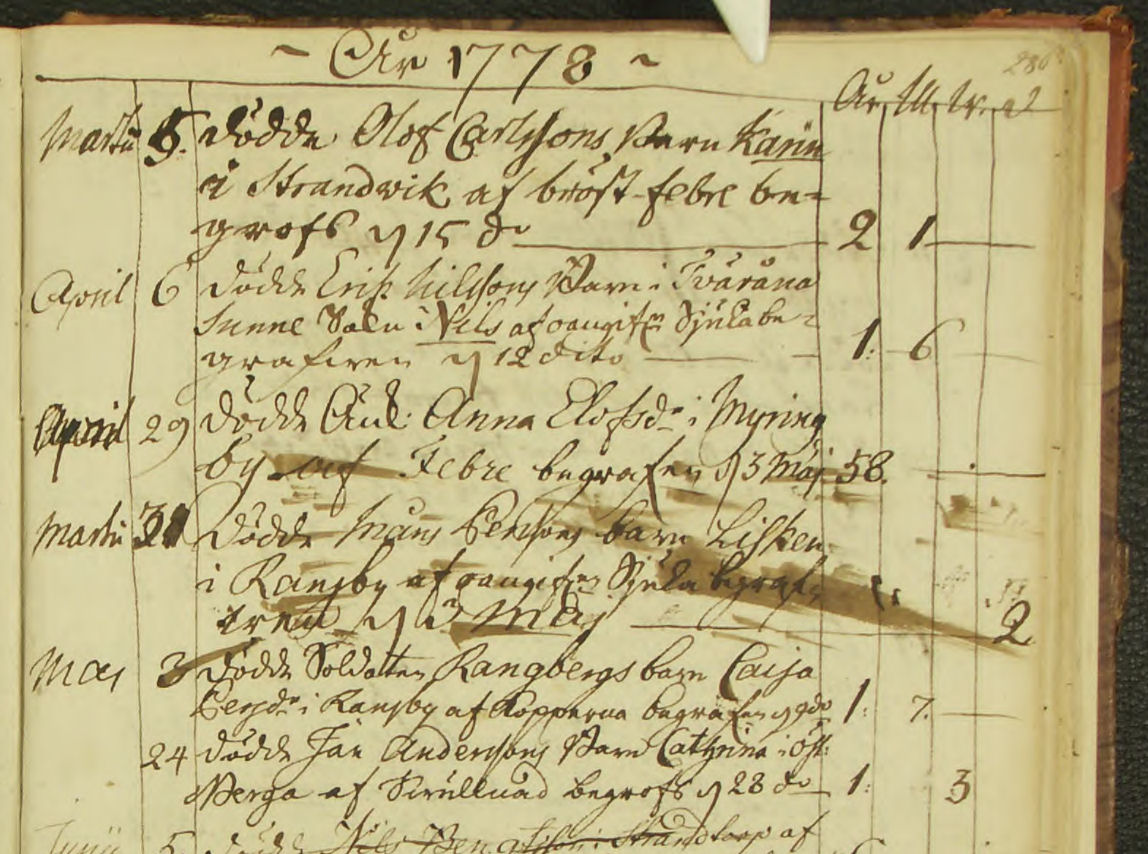 ~ Åhr 1778 ~
286
År M. W. d
Martii 5. dödde Olof Carlssons Barn Karin
i Strandwik af bröst-febre be=
grofs d 15 do 2 1
April 6 dödde Erich Nilssons Barn i Tväråna
Sunne Sokn Nils af oangifen Sjuka be=
grafwen d 12 dito 1: 6
April 29 dödde Enk: Anna Elofsdr i Myring
by af Febre begrafen d 3 Maj 58.
Martii 31 dödde Måns Persons barn Lisken
i Ransby af oangifen Sjuka begraf
d 3 Maj 2
Maj 3 dödde Soldaten Rangbergs barn Caisa
Persdr i Ransby af Kopporna begrafen d 9 do 1: 7.
24 dödde Jan Anderssons Barn Cathrina i Öst:
Berga af begrofs d 28 do 1: 3
Junii 5. dödde Nils Bengtsson i Strandtorp af